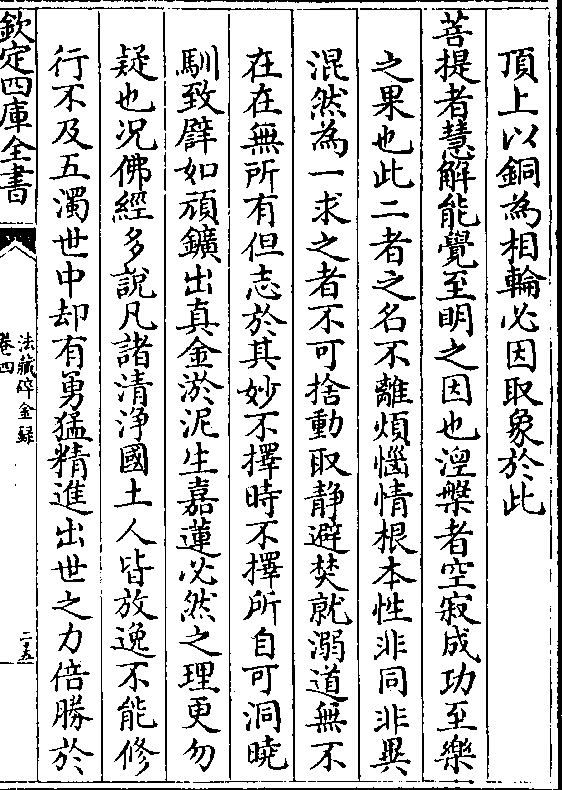 頂上以銅為相輪必因取象於此
菩提者慧解能覺至明之因也湼槃者空寂成功至樂
之果也此二者之名不離煩惱情根本性非同非異
混然為一求之者不可捨動取静避焚就溺道無不
在在無所有但志於其妙不擇時不擇所自可洞曉
馴致譬如頑鑛出真金淤泥生嘉蓮必然之理更勿
疑也况佛經多說凡諸清淨國土人皆放逸不能修
行不及五濁世中却有勇猛精進出世之力倍勝於
欽定四庫全書
法藏碎金録
卷四
二五